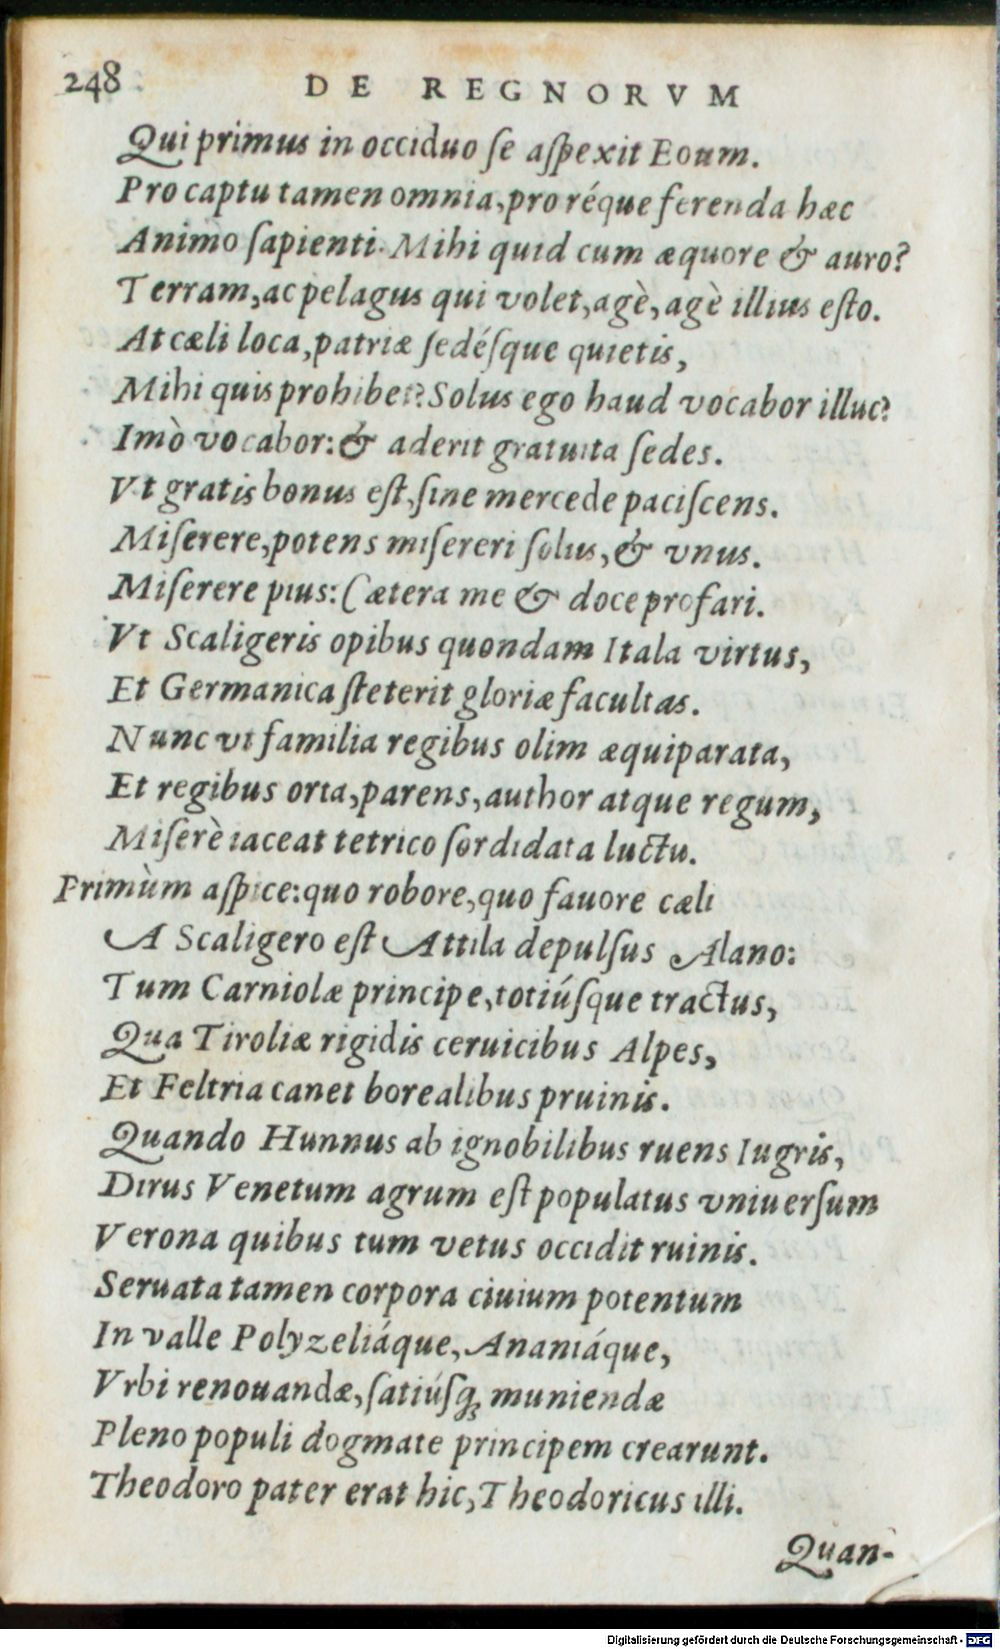 248 DE REGNORVM
Qui primus in occiduo ſe aſpexit Eoum.
Pro captu tamen omnia, pro réque ferenda hæc
Animo ſapienti. Mihi quid cum æquore & auro?
Terram, ac pelagus qui volet, agè, agè illius eſto.
At cæli loca, patriæ ſedéſque quietis,
Mihi quis prohibet? Solus ego haud vocabor illuc?
Imò vocabor: & aderit gratuita ſedes.
Vt gratis bonus eſt, ſine mercede paciſcens.
Miſerere, potens miſereri ſolus, & vnus.
Miſerere pius: Cætera me & doce profari.
Vt Scaligeris opibus quondam Itala virtus,
Et Germanica ſteterit gloriæ facultas.
Nunc vt familia regibus olim æquiparata,
Et regibus orta, parens, author atque regum,
Miſerè iaceat tetrico ſordidata luctu.
Primùm aſpice: quo robore, quo fauore cæli
A Scaligero eſt Attila depulſus Alano:
Tum Carniolæ principe, totiúſque tractus,
Qua Tiroliæ rigidis ceruicibus Alpes,
Et Feltria canet borealibus pruinis.
Quando Hunnus ab ignobilibus ruens Iugris,
Dirus Venetum agrum eſt populatus vniuerſum
Verona quibus tum vetus occidit ruinis.
Seruata tamen corpora ciuium potentum
In valle Polyzeliáque, Ananiáque,
Vrbi renouandæ, ſatiúſq; muniendæ
Pleno populi dogmate principem crearunt.
Theodoro pater erat hic, Theodoricus illi.
Quan-
Digitalisierung gefördert durch die Deutsche Forschungsgemeinschaft - DFG